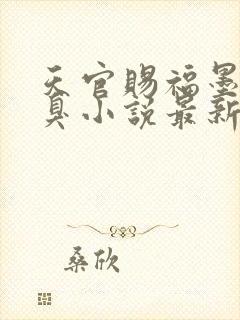 天官赐福墨
真小说最新
桑欣